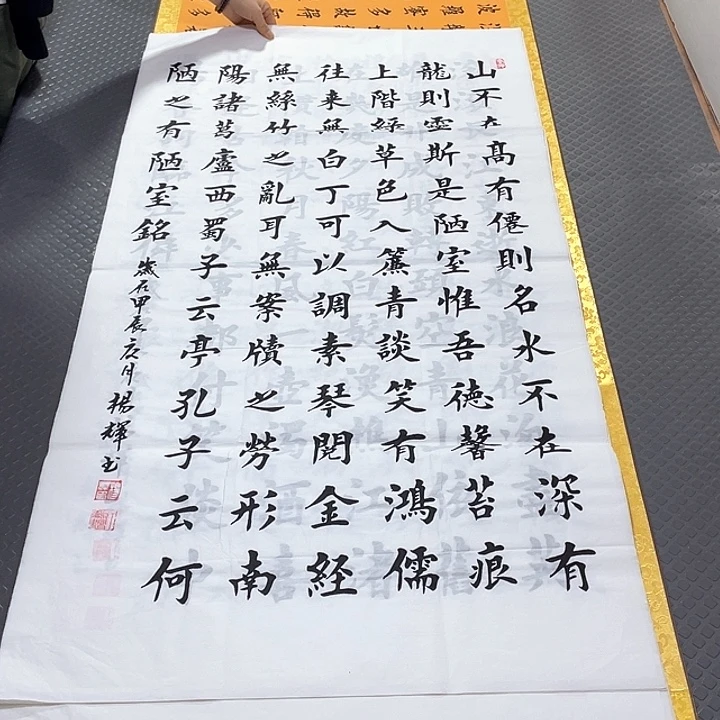 山不在高有僊則名水不在深有
龍則靈斯是陋室惟吾德馨苔痕
上階綠草色入簾青談笑有鴻儒
往来無白丁可以調素琴閱金経
無絲竹之亂耳無案牘之勞形南
陽諸葛廬西蜀子云亭孔子云何
陋之有陋室銘
歲在甲辰月楊輝书
波羅蜜多故得